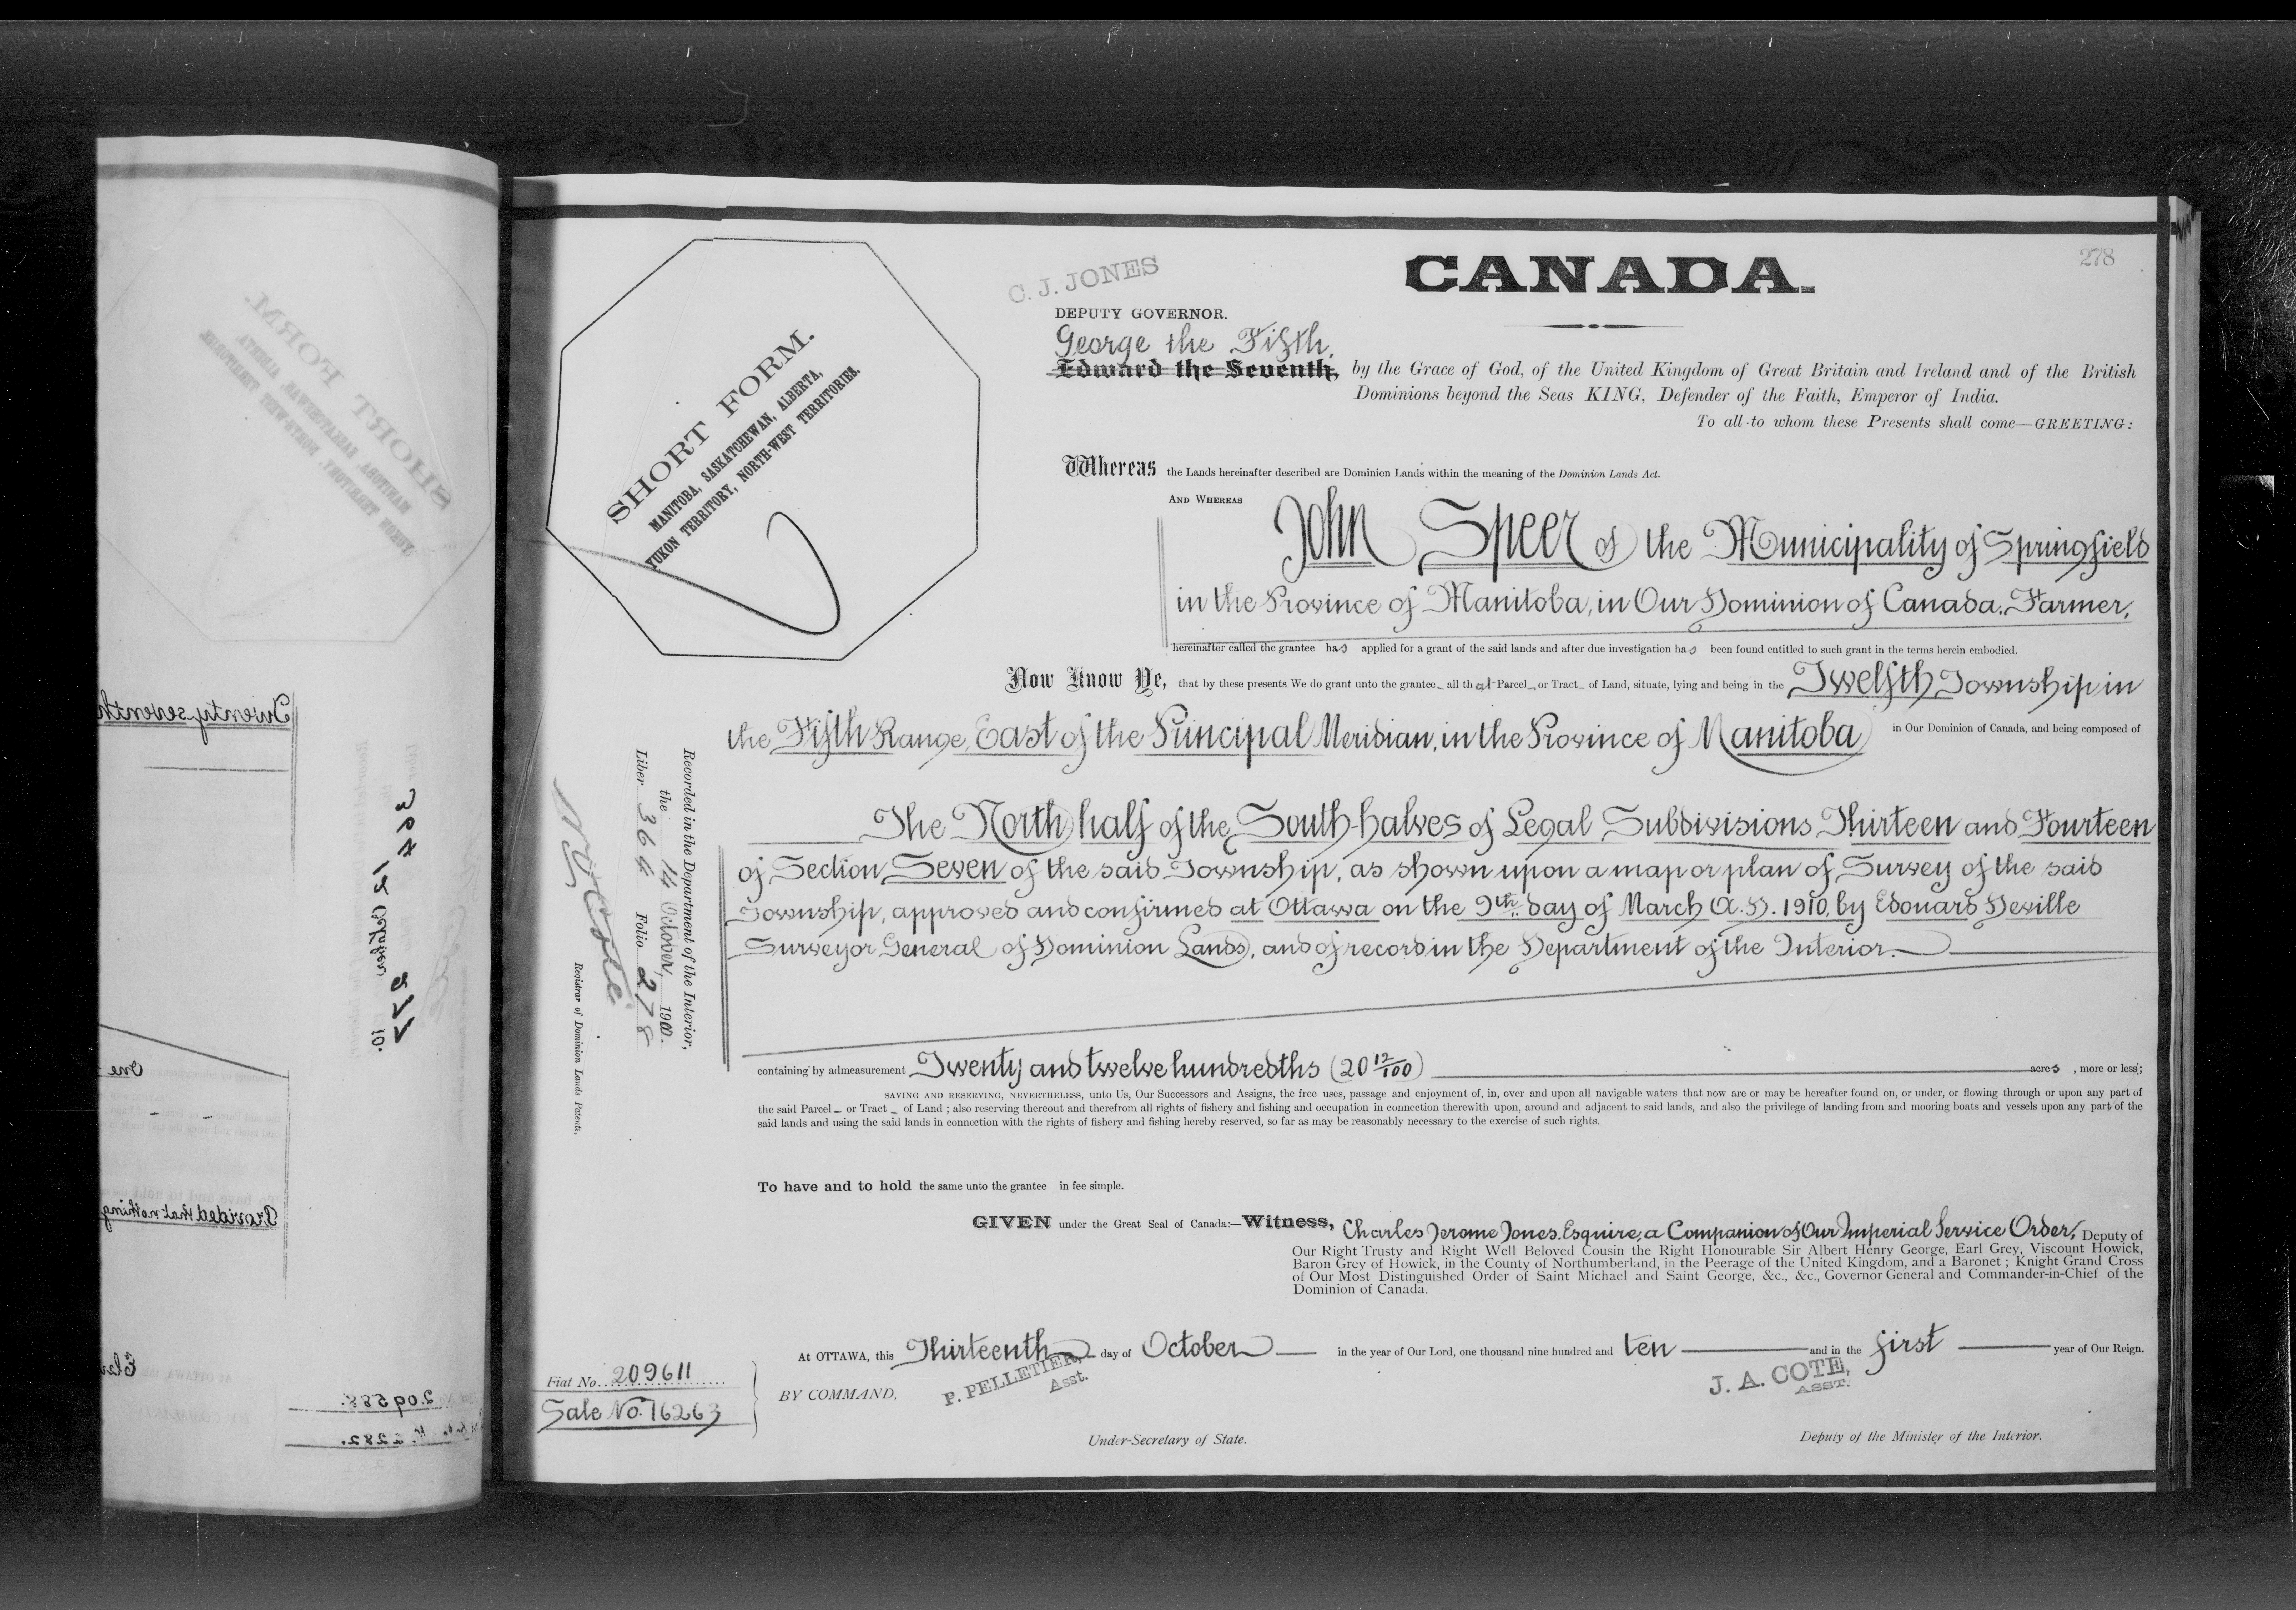 278
CANADA.
C. J. JONES
DEPUTY GOVERNOR.
George the Fifth,
Edward the Seventh, by the Grace of God, of the United Kingdom of Great Britain and Ireland and of the British
Dominions beyond the Seas KING, Defender of the Faith, Emperor of India.
To all to whom these Presents shall come—GREETING:
SHORT FORM.
MANITOBA, SASKATCHEWAN, ALBERTA,
YUKON TERRITORY, NORTH-WEST TERRITORIES.
Whereas the Lands hereinafter described are Dominion Lands within the meaning of the Dominion Lands Act.
AND WHEREAS
John Speer of the Municipality of Springfield
in the Province of Manitoba, in Our Dominion of Canada, Farmer,
hereinafter called the grantee has applied for a grant of the said lands and after due investigation has been found entitled to such grant in the terms herein embodied.
Now Know Ye, that by these presents We do grant unto the grantee all that Parcel or Tract of Land, situate, lying and being in the Twelfth Township in
the Fifth Range, East of the Principal Meridian, in the Province of Manitoba in Our Dominion of Canada, and being composed of
The North half of the South halves of Legal Subdivisions Thirteen and Fourteen
of Section Seven of the said Township, as shown upon a map or plan of Survey of the said
Township, approved and confirmed at Ottawa on the 9th. day of March A.D. 1910, by Edouard Deville
Surveyor General of Dominion Lands, and of record in the Department of the Interior.
containing by admeasurement Twenty and twelve hundredths (20 12/100) acres, more or less;
SAVING AND RESERVING, NEVERTHELESS, unto Us, Our Successors and Assigns, the free uses, passage and enjoyment of, in, over and upon all navigable waters that now are or may be hereafter found on, or under, or flowing through or upon any part of
the said Parcel or Tract of Land; also reserving thereout and therefrom all rights of fishery and fishing and occupation in connection therewith upon, around and adjacent to said lands, and also the privilege of landing from and mooring boats and vessels upon any part of the
said lands and using the said lands in connection with the rights of fishery and fishing hereby reserved, so far as may be reasonably necessary to the exercise of such rights.
To have and to hold the same unto the grantee in fee simple.
GIVEN under the Great Seal of Canada:—Witness, Charles Jerome Jones, Esquire, a Companion of Our Imperial Service Order, Deputy of
Our Right Trusty and Right Well Beloved Cousin the Right Honourable Sir Albert Henry George, Earl Grey, Viscount Howick,
Baron Grey of Howick, in the County of Northumberland, in the Peerage of the United Kingdom, and a Baronet; Knight Grand Cross
of Our Most Distinguished Order of Saint Michael and Saint George, &c., &c., Governor General and Commander-in-Chief of the
Dominion of Canada.
At OTTAWA, this Thirteenth day of October in the year of Our Lord, one thousand nine hundred and ten and in the first year of Our Reign.
BY COMMAND,
P. PELLETIER,
Asst.
Under-Secretary of State.
J. A. COTE,
ASST.
Deputy of the Minister of the Interior.
Fiat No. 209611
Sale No. 76263
Recorded in the Department of the Interior,
the 14 October, 1910.
Liber 364 Folio 278
Registrar of Dominion Lands Patents.
SHORT FORM.
MANITOBA, SASKATCHEWAN, ALBERTA,
YUKON TERRITORY, NORTH-WEST TERRITORIES.
Twenty seventh
364
12 October 10.
277
One
Provided that nothing
209588.
2282.